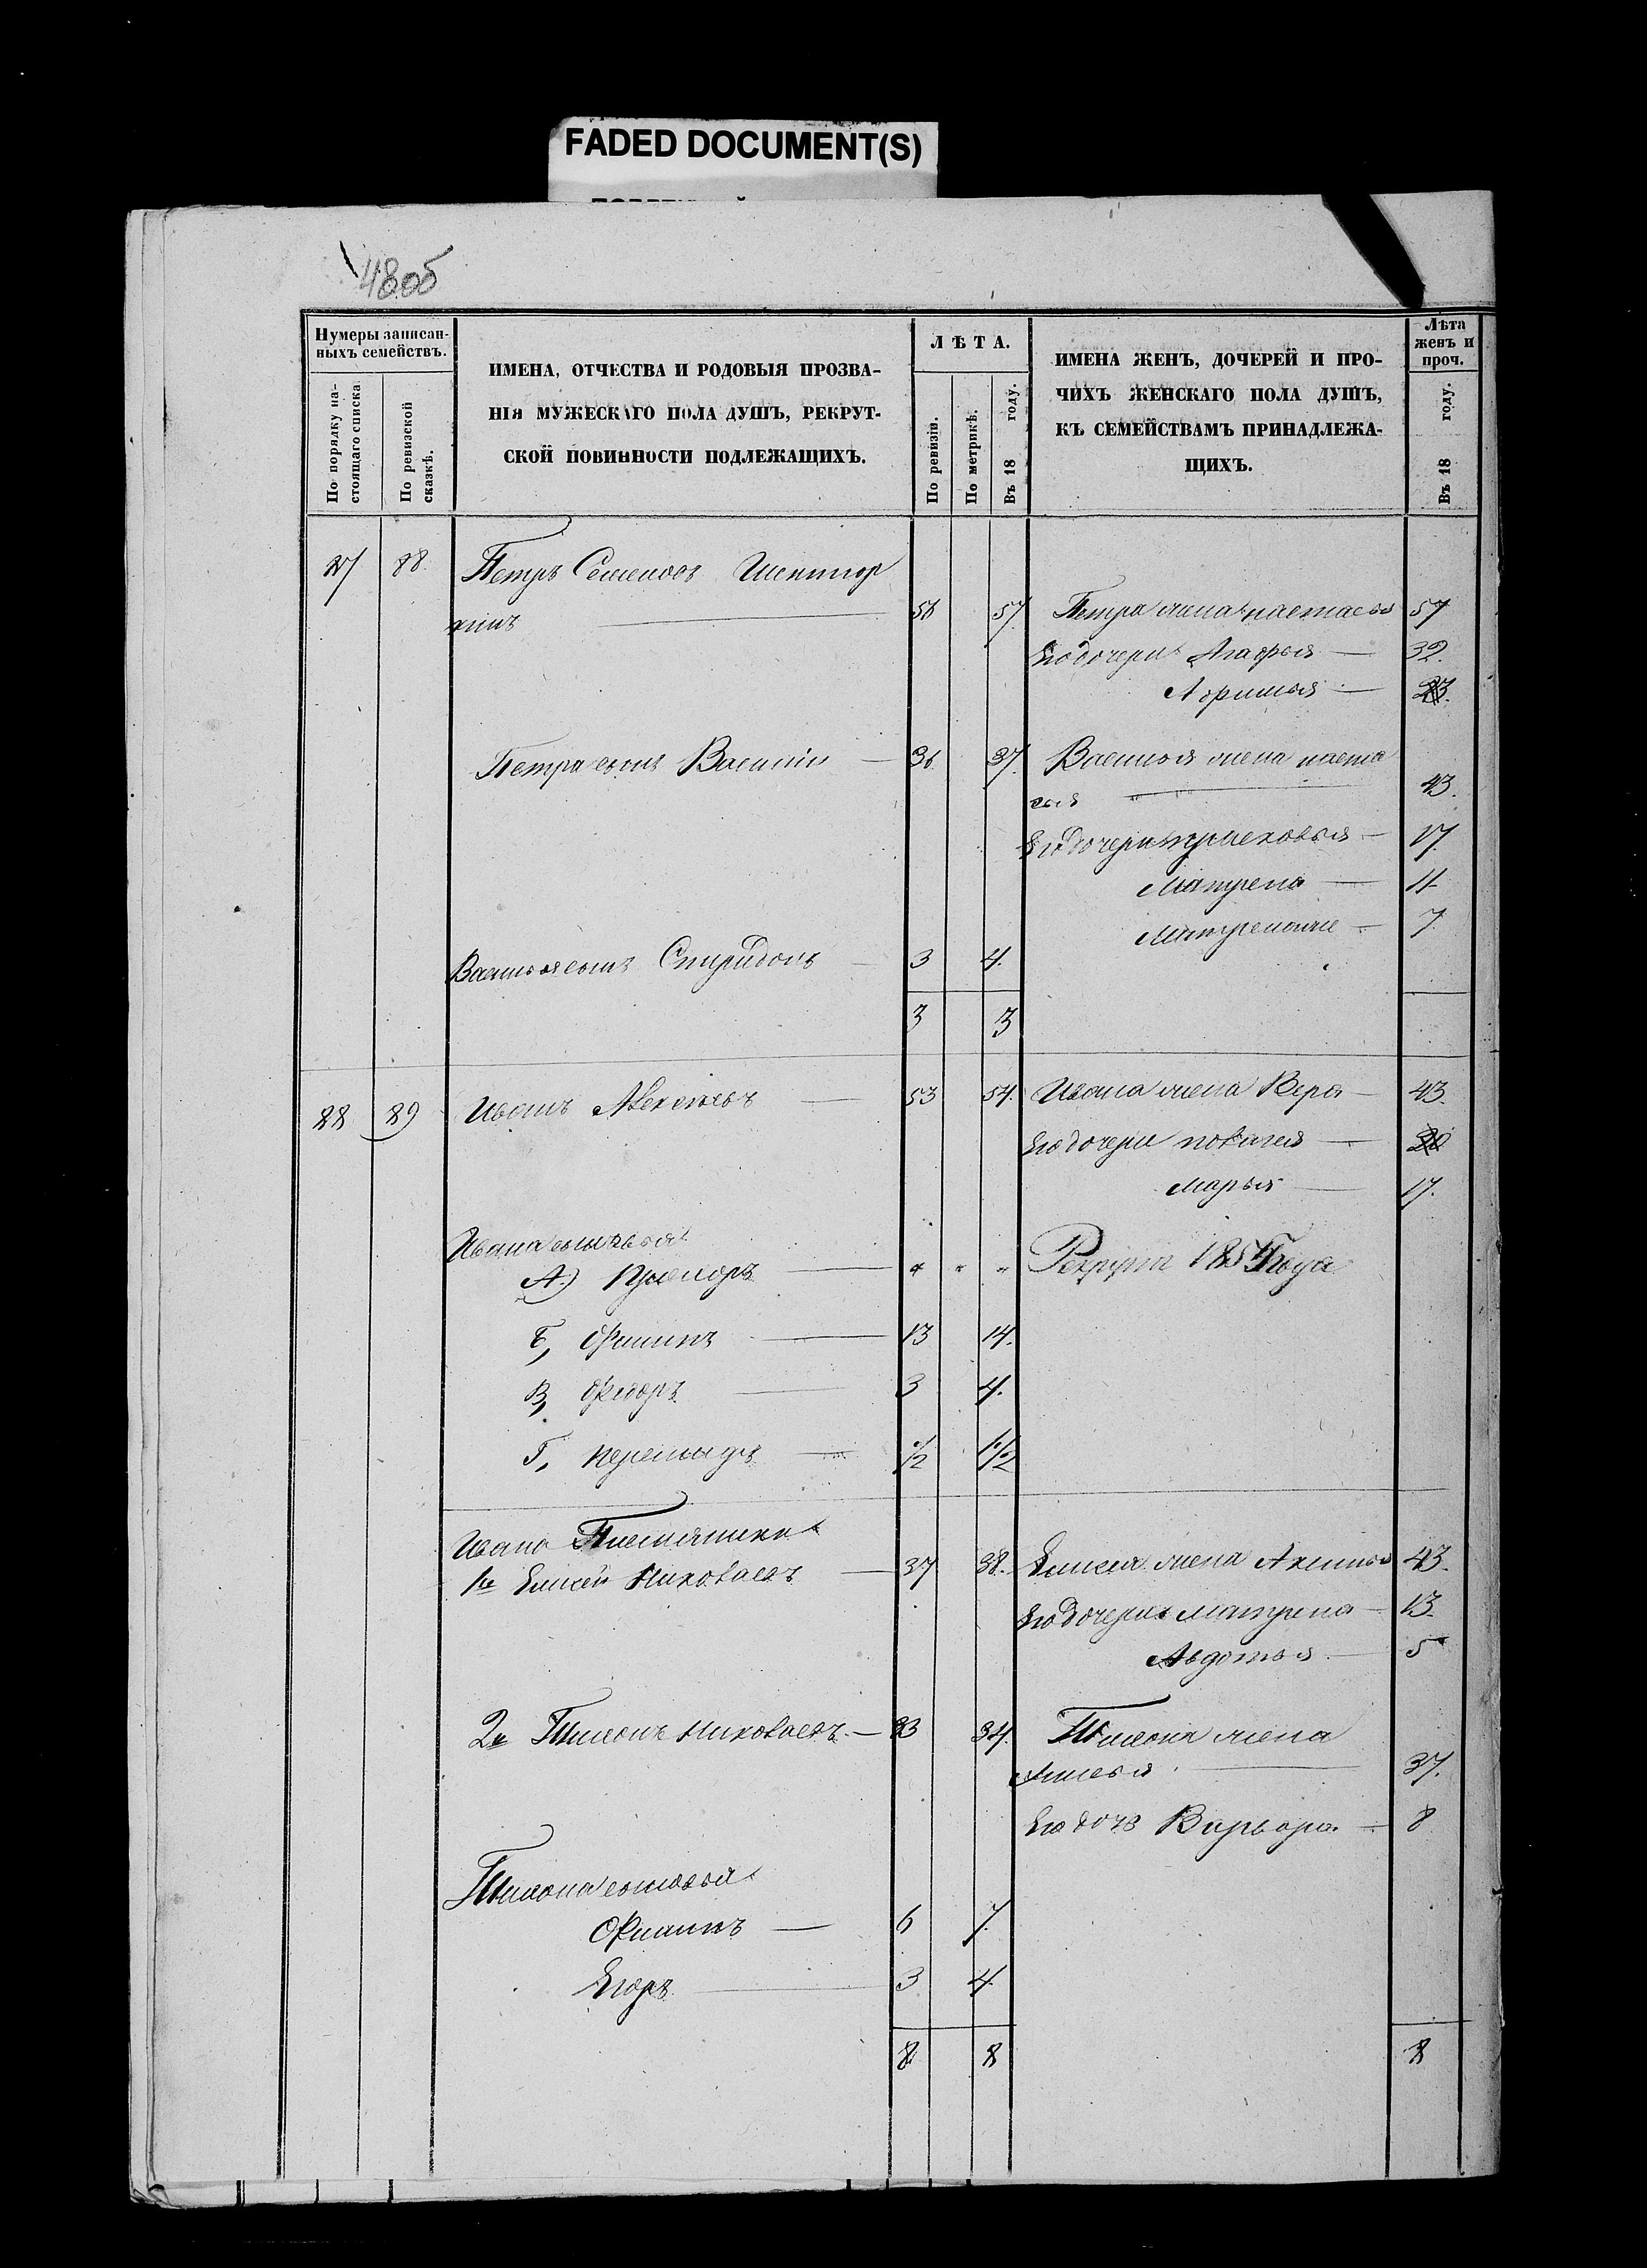 FADED DOCUMENT(S)
48об
Нумеры записан-
ныхъ семействъ.
По порядку на-
стоящаго списка
По ревизской
сказкѣ.
ИМЕНА, ОТЧЕСТВА И РОДОВЫЯ ПРОЗВА-
НІЯ МУЖЕСКАГО ПОЛА ДУШЪ, РЕКРУТ-
СКОЙ ПОВИННОСТИ ПОДЛЕЖАЩИХЪ.
ЛѢТА.
По ревизіи.
По метрикѣ.
Въ 18 году.
ИМЕНА ЖЕНЪ, ДОЧЕРЕЙ И ПРО-
ЧИХЪ ЖЕНСКАГО ПОЛА ДУШЪ,
КЪ СЕМЕЙСТВАМЪ ПРИНАДЛЕЖА-
ЩИХЪ.
Лѣта
женъ и
проч.
Въ 18 году.
88. Петръ Семеновъ
56 57 Петра жена настасья 57
Его дочери Агафья — 32.
23.
Петра сынъ Василій — 36 37. Василья жена наста
сья 43.
Его дочери 17.
Матрена — 11
7
Василья сынъ Спиридонъ — 3 4.
3 3
88 89 Иванъ Алексѣевъ — 53 54. Ивана жена Вера — 43.
Его дочери —
Марья — 17.
Ивана сыновья
А) — " " " Рекрутъ 1854 года
Б, Филипъ — 13 14.
В, Федоръ — 3 4.
Г, — 1/2 1 1/2
Ивана Племянники
1й Елисей Николаевъ — 37 38. Елисея жена Аксинья 43.
Его дочери Матрена — 13.
Авдотья — 5
2й Тимонъ Николаевъ — 33 34. Тимона жена
37.
Его дочь Варвара — 8
Тимона сыновья
Филипъ — 6 7.
Егоръ — 3 4
8 8 8